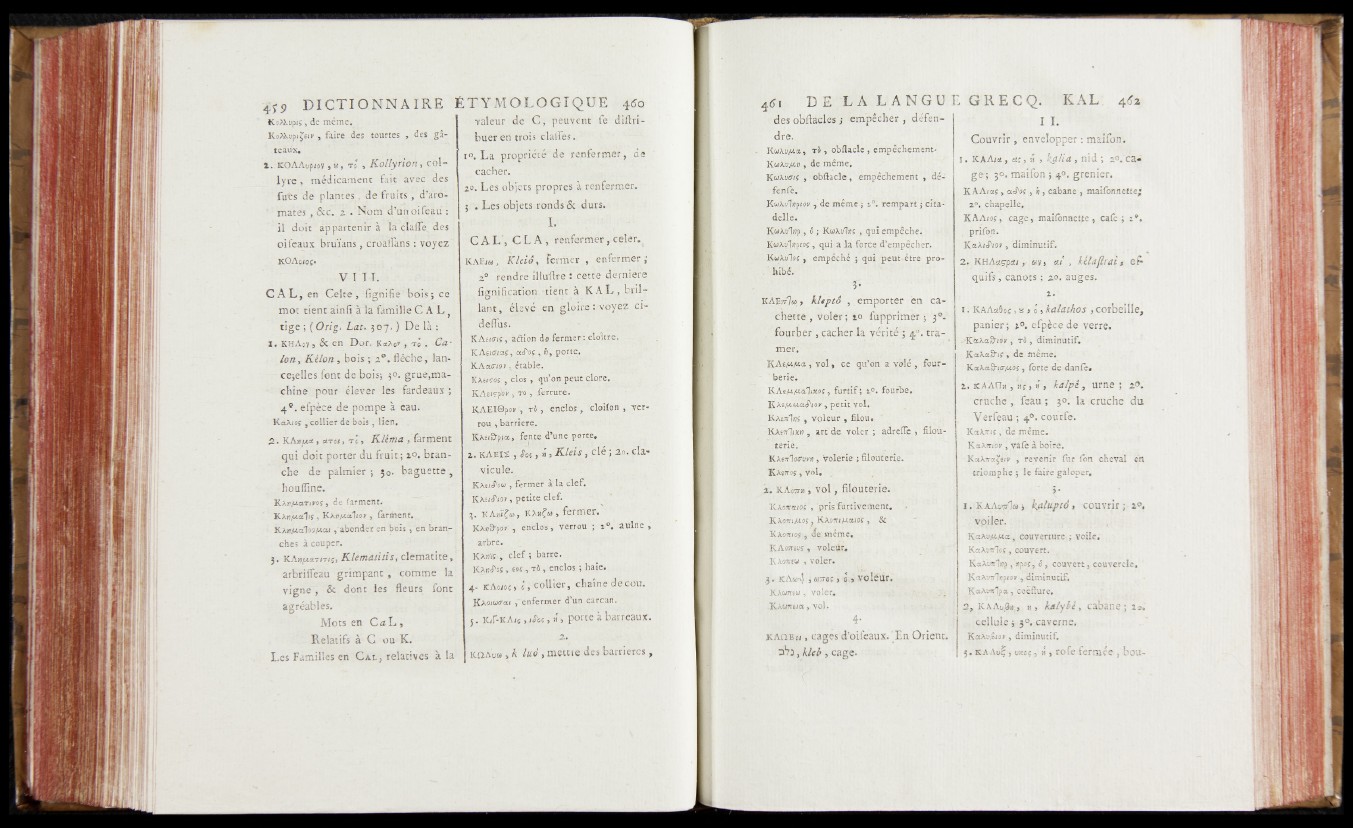 459 DICTIONNAIRE ÉTYMOLOGIQUE 460
Κολλυρις, de même.
Κολλυριζειν, faire des tourtes, des gâ-
teaux.
2. ΚΟΛΛυριον, υ, το, Kollyrion, col-
lyre, médicament fait avec des
sucs de plantes, de fruits, d'aro-
mates, &c. 2. Nom d'un oiseau :
il doit appartenir à la classe des
oiseaux bruïans, croassans : voyez
ΚΟΛοιος.
VIII.
CAL, en Celte, signifie bois; ce
mot tient ainsi à la famille CAL,
tige; (Orig. Lat. 307.) De là :
1. ΚΗΛον, & en Dor. Καλον, το, Ca-
lon, Kêlon, bois; 2°. fléche, lan-
ce; elles sont de bois; 3o. grue, ma-
chine pour élever les fardeaux;
4°. espèce de pompe à eau.
Καλιος, collier de bois, lien.
2. ΚΛημα, ατος, το, Klêma, sarment
qui doit porter du fruit; 2o. bran-
che de palmier; 3o. baguette,
houssine.
Κληματινος, de sarment.
Κληματις, Κληματιον, sarment.
Κληματοομαι, abonder en bois, en bran-
ches à couper.
3. ΚΛηματιτις, Klematitis, clematite,
arbrisseau grimpant, comme la
vigne, & dont les fleurs sont
agréables.
Mots en CaL,
Relatifs à C ou K.
Les Familles en CAL, relatives à la
valeur de C, peuvent se distri-
buer en trois classes.
1o. La propriété de renfermer, de
cacher.
2o. Les objets propres à renfermer.
3. Les objets ronds & durs.
I.
CAL, CLA, renfermer, celer.
ΚΛΕιω, Kleió, fermer, enfermer;
2° rendre illustre : cette derniere
signification tient à KAL, bril-
lant, élevé en gloire : voyez ci-
dessus.
ΚΛεισις, action de fermer : cloître.
ΚΛεισιας, αδος, η, porte.
ΚΛεισιον, étable.
Κλειστος, clos, qu'on peut clore.
ΚΛειστρον, το, serrure.
ΚΛΕΙΘρον, το, enclos, cloison, ver-
rou, barriere.
Κλειθρια, fente d'une porte.
2. ΚΛΕΙΣ, δος, η, Kleis, clé; 2o. cla-
vicule.
Κλειδοω, fermer à la clef.
Κλειδιον, petite clef.
3. ΚΛηϊζω, Κληζω, fermer.
Κληθρον, enclos, verrou; 2°. aulne,
arbre.
Κληϊς, clef; barre.
Κληδος, εος, το, enclos; haie.
4. ΚΛοιος, ο, collier, chaîne de cou.
Κλοιωσαι, enfermer d'un carcan.
5. ΚιΓ-ΚΛις, ιδος, η, porte à barreaux.
2.
ΚΩΛυω, k luó, mettre des barrieres,
461 DE LA LANGUE GRECQ. KAL 462
des obstacles; empêcher, défen-
dre.
Κωλυμα, το, obstacle, empêchement.
Κωλυμη, de même.
Κωλυσις, obstacle, empêchement, dé-
fense.
Κωλυτηριον, de même; 2°. rempart; cita-
delle.
Κωλυτηρ, ο; Κωλυτης, qui empêche.
Κωλυτηριος, qui a la force d'empêcher.
Κωλυτος, empêché; qui peut être pro-
hibé.
3.
ΚΛΕπτω, kleptó, emporter en ca-
chette, voler; 2o supprimer; 3°.
fourber, cacher la vérité; 4°. tra-
mer.
ΚΛεμμα, vol, ce qu'on a volé, four-
berie.
ΚΛεμματικος, furtif; 2°. fourbe.
Κλεμμαδιον, petit vol.
Κλεπτης, voleur, filou.
Κλεπτικη, art de voler; adresse, filou-
terie.
Κλεπτοσυνη, volerie; filouterie.
Κλοπος, vol.
2. ΚΛοπη, vol, filouterie.
Κλοπαιος, pris furtivement.
Κλοπιμος, Κλοπιμαιος, &
Κλοπιος, de même.
ΚΛοπευς, voleur.
Κλοπευω, voler.
3. ΚΛωψ, ωπος, ο, voleur.
Κλωπευω, voler.
Κλωπεια, vol.
4.
ΚΛΩΒοι, cages d'oiseaux. En Orient.
כלב, kleb, cage.
II.
Couvrir, envelopper : maison.
1. ΚΑΛια, ας, η, kalia, nid; 2o. ca-
ge; 3o. maison; 4o. grenier.
ΚΑΛιας, αδος, η, cabane, maisonnette;
2°. chapelle.
ΚΑΛιος, cage, maisonnette, case; 2°.
prison.
Καλιδιον, diminutif.
2. ΚΗΛαστραι, ων, αι, kélastrai, es-
quifs, canots; 2o. auges.
2.
1. ΚΑΛαθος, υ, ο, kalathos, corbeille,
panier; 2°. espèce de verre.
Καλαθιον, το, diminutif.
Καλαθις, de même.
Καλαθισμος, sorte de danse.
2. ΚΑΛΠη, ης, η, kalpé, urne; 2°.
cruche, seau; 3°. la cruche du
Verseau; 4°. course.
Καλπις, de même.
Καλπιον, vase à boire.
Καλπαζειν, revenir sur son cheval en
triomphe; le faire galoper.
3.
1. ΚΑΛυπτω, kaluptó, couvrir; 2°.
voiler.
Καλυμμα, couverture; voile.
Καλυπτος, couvert.
Καλυπτηρ, ηρος, ο, couvert, couvercle.
Καλυπτηριον, diminutif.
Καλυπτρα, coëffure.
2. ΚΑΛυβη, η, kalybé, cabane; 2o.
cellule; 3°. caverne.
Καλυβιον, diminutif.
3. ΚΑΛυξ, υκος, η, rose fermée, bou-